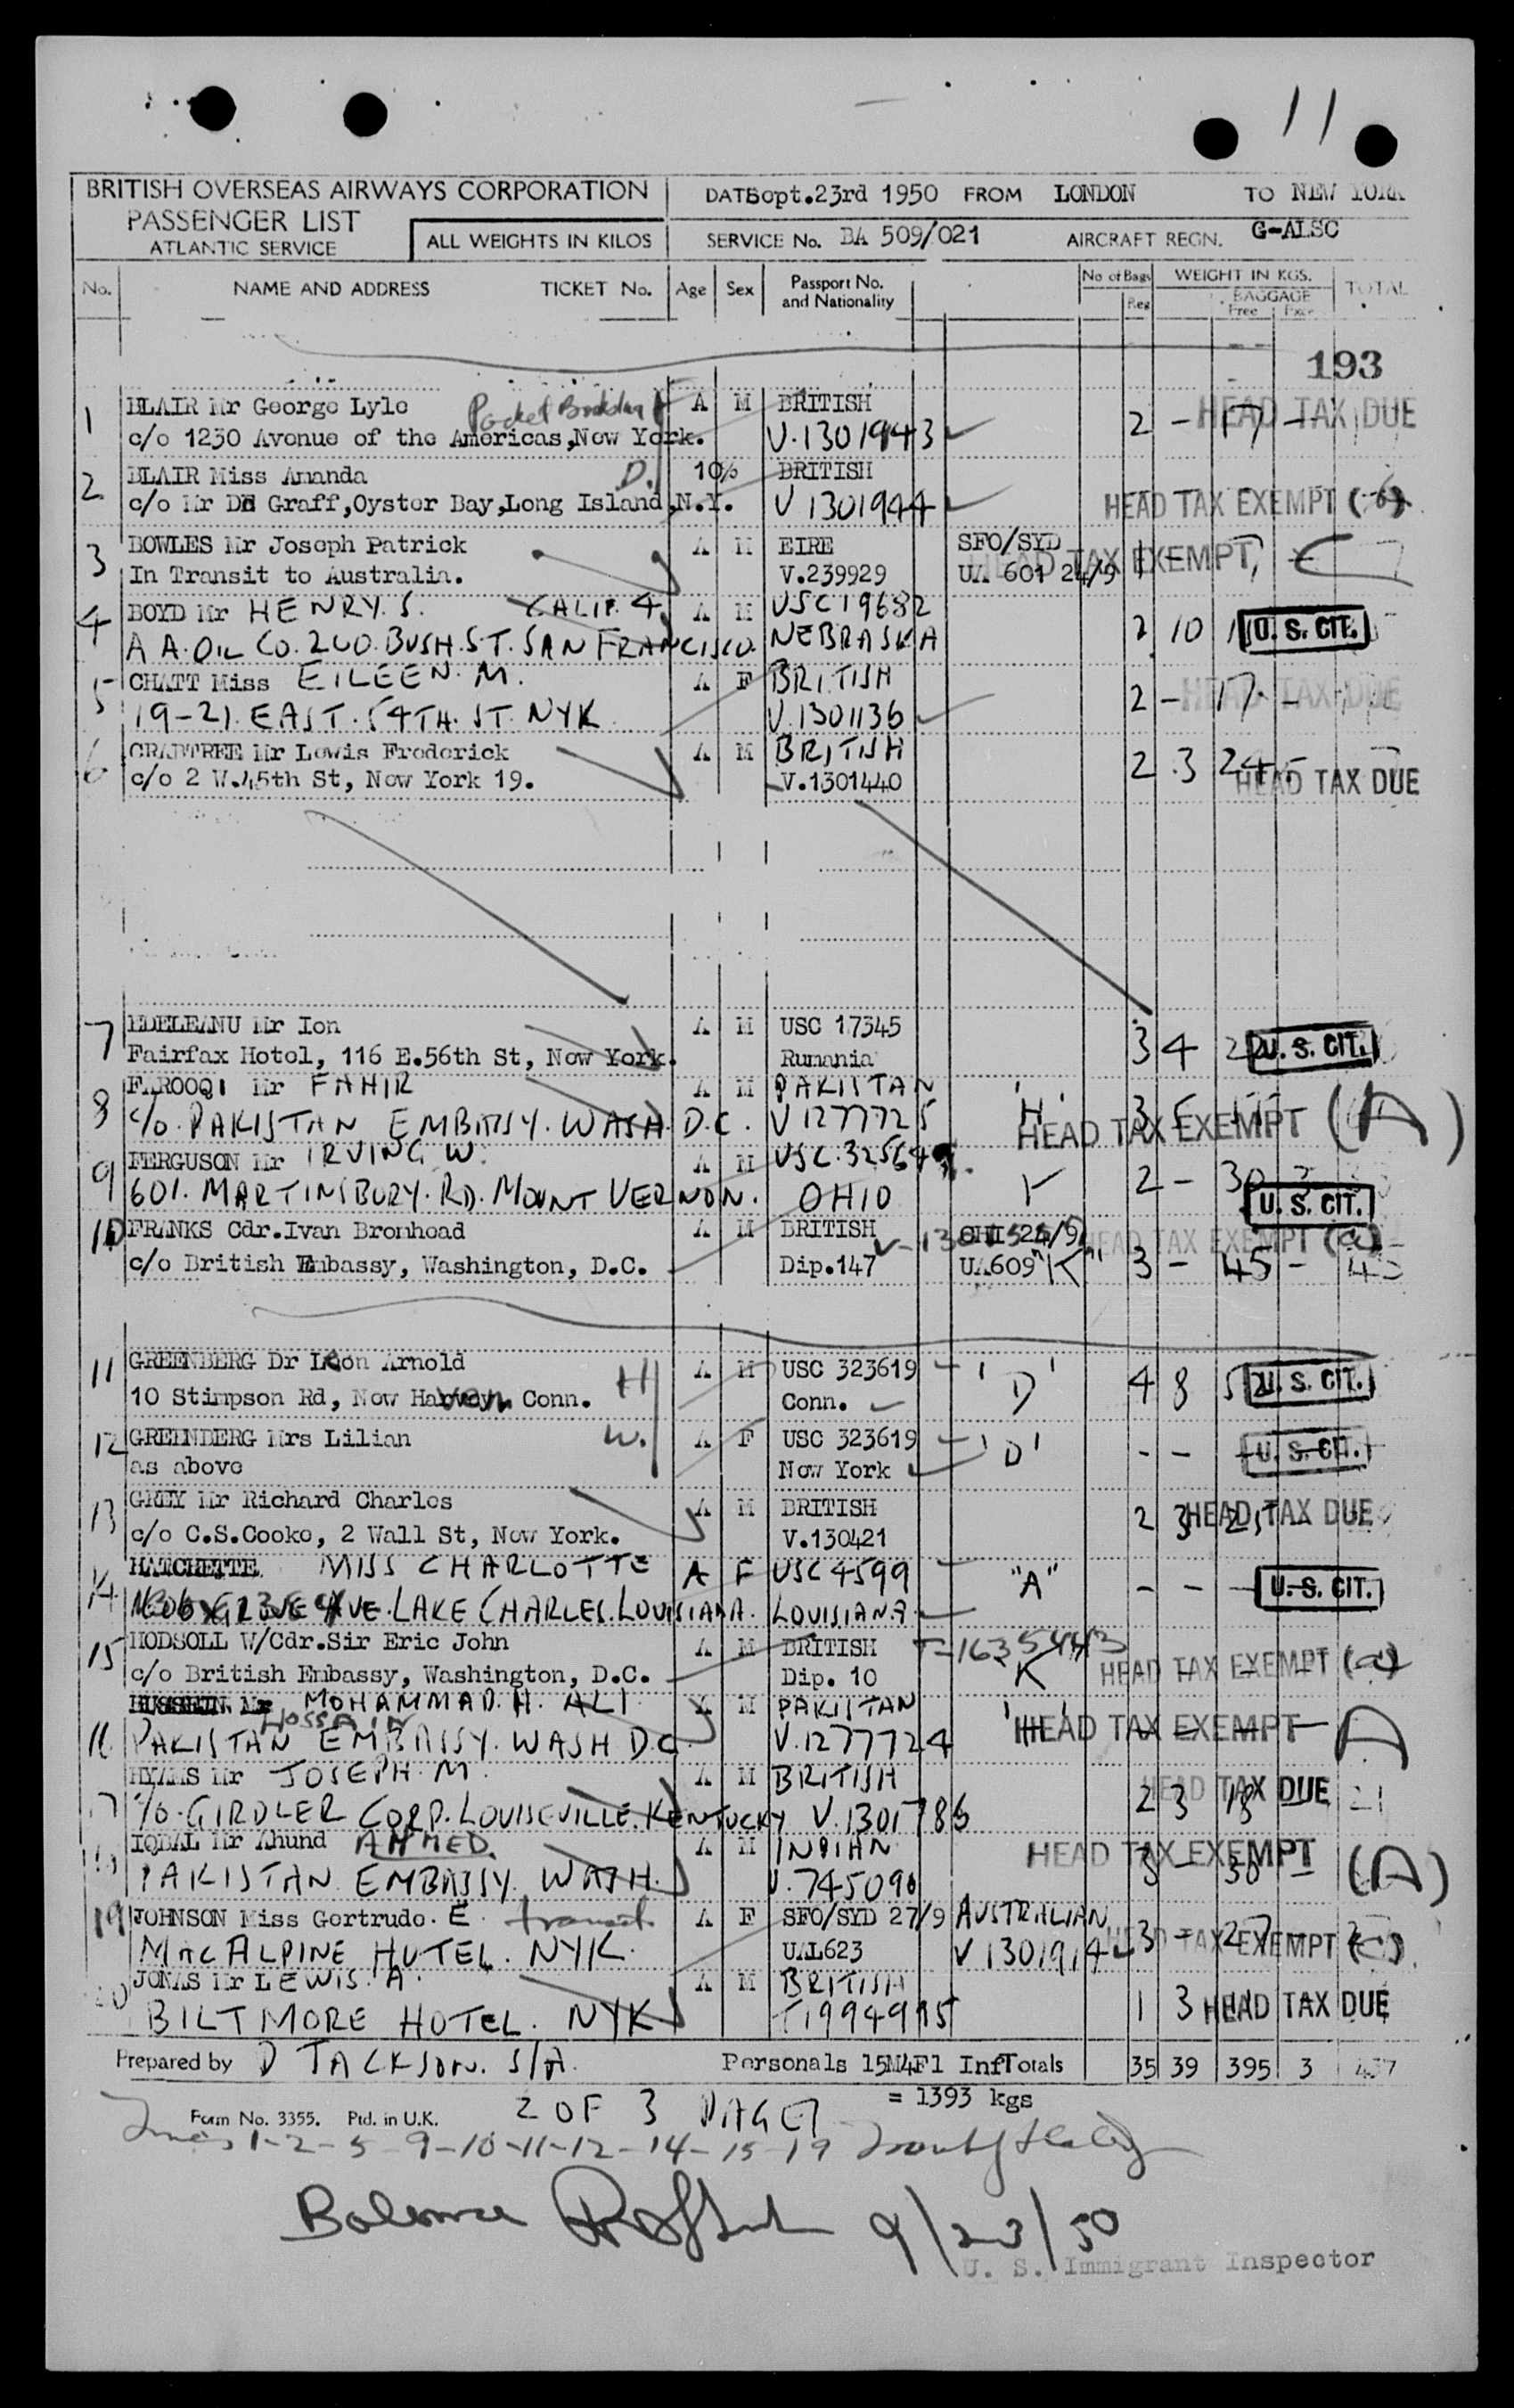 11
BRITISH OVERSEAS AIRWAYS CORPORATION
PASSENGER LIST
ATLANTIC SERVICE
ALL WEIGHTS IN KILOS
DATE Sept.23rd 1950 FROM LONDON TO NEW YORK
SERVICE No. BA 509/021 AIRCRAFT REGN. G-ALSC
No. NAME AND ADDRESS TICKET No. Age Sex Passport No. and Nationality No of Bags Reg WEIGHT IN KGS. BAGGAGE Free Exce TOTAL
193
1 BLAIR Mr George Lyle A M BRITISH HEAD TAX DUE
c/o 1230 Avenue of the Americas,New York. V.1301943 2 - 17 -
2 BLAIR Miss Amanda D. 10½ BRITISH
c/o Mr De Graff,Oyster Bay,Long Island,N.Y. V 1301944 HEAD TAX EXEMPT
3 BOWLES Mr Joseph Patrick A M EIRE SFO/SYD
In Transit to Australia. V.239929 UA 601 24/9 1 - 7 - HEAD TAX EXEMPT
4 BOYD Mr HENRY. S. CALIF. 4 A M USC 19682
A A. OIL CO. 200. BUSH. ST. SAN FRANCISCO. NEBRASKA 2 10 U. S. CIT.
5 CHATT Miss EILEEN. M. A F BRITISH
19-21. EAST. 54TH. ST. NYK V.1301136 2 - 17 - HEAD TAX DUE
6 CRABTREE Mr Lewis Frederick A M BRITISH
c/o 2 W.45th St, New York 19. V.1301440 2 3 24 - HEAD TAX DUE
7 EDELEANU Mr Ion A M USC 17345
Fairfax Hotel, 116 E.56th St, New York. Rumania 3 4 U. S. CIT.
8 FAROOQI Mr FAHIR A M PAKISTAN
c/o. PAKISTAN EMBASSY. WASH. D.C. V 1277725 'H' HEAD TAX EXEMPT (A)
9 FERGUSON Mr IRVING W. A M USC. 32564
601. MARTINSBURY. RD. MOUNT VERNON. OHIO 2 - 30 3 U. S. CIT.
10 FRANKS Cdr.Ivan Bronhead A M BRITISH CHI 24/9 HEAD TAX EXEMPT (a)
c/o British Embassy, Washington, D.C. Dip.147 UA609 "K" 3 - 45 - 45
11 GREENBERG Dr Leon Arnold H A M USC 323619 'D'
10 Stimpson Rd, New Haven Conn. Conn. 4 8 U. S. CIT.
12 GREENBERG Mrs Lilian W. A F USC 323619 'D'
as above New York - - U. S. CIT.
13 GREY Mr Richard Charles A M BRITISH
c/o C.S.Cooke, 2 Wall St, New York. V.130421 2 3 HEAD TAX DUE
14 HATCHETTE MISS CHARLOTTE A F USC 4599 "A"
AVE. LAKE CHARLES. LOUISIANA. LOUISIANA - - U. S. CIT.
15 HODSOLL W/Cdr.Sir Eric John A M BRITISH
c/o British Embassy, Washington, D.C. Dip. 10 K HEAD TAX EXEMPT (a)
HUSSEIN Mr MOHAMMAD. H. ALI A M PAKISTAN
HOSSAIN
16 PAKISTAN EMBASSY. WASH D.C. V.1277724 'H' HEAD TAX EXEMPT A
HYAMS Mr JOSEPH. M. A M BRITISH
17 c/o. GIRDLER CORP. LOUISEVILLE. KENTUCKY V.1301786 2 3 18 21 HEAD TAX DUE
18 IQBAL Mr Ahund AHMED. A M INDIAN
PAKISTAN EMBASSY. WASH. V.745090 3 - 30 - HEAD TAX EXEMPT (A)
19 JOHNSON Miss Gertrude. E. transit A F SFO/SYD 27/9 AUSTRALIAN
MACALPINE HOTEL. NYK. UAL623 V 1301914 3 - 27 - HEAD TAX EXEMPT (C)
20 JONAS Mr LEWIS. A. A M BRITISH
BILTMORE HOTEL. NYK 1 3 HEAD TAX DUE
Prepared by D JACKSON. S/A. Personals 15M4F1 Inf Totals 35 39 395 3 437
= 1393 kgs
Form No. 3355. Ptd. in U.K. 2 OF 3 PAGES
Lines 1-2-5-9-10-11-12-14-15-19
Balance 9/23/50
U. S. Immigrant Inspector